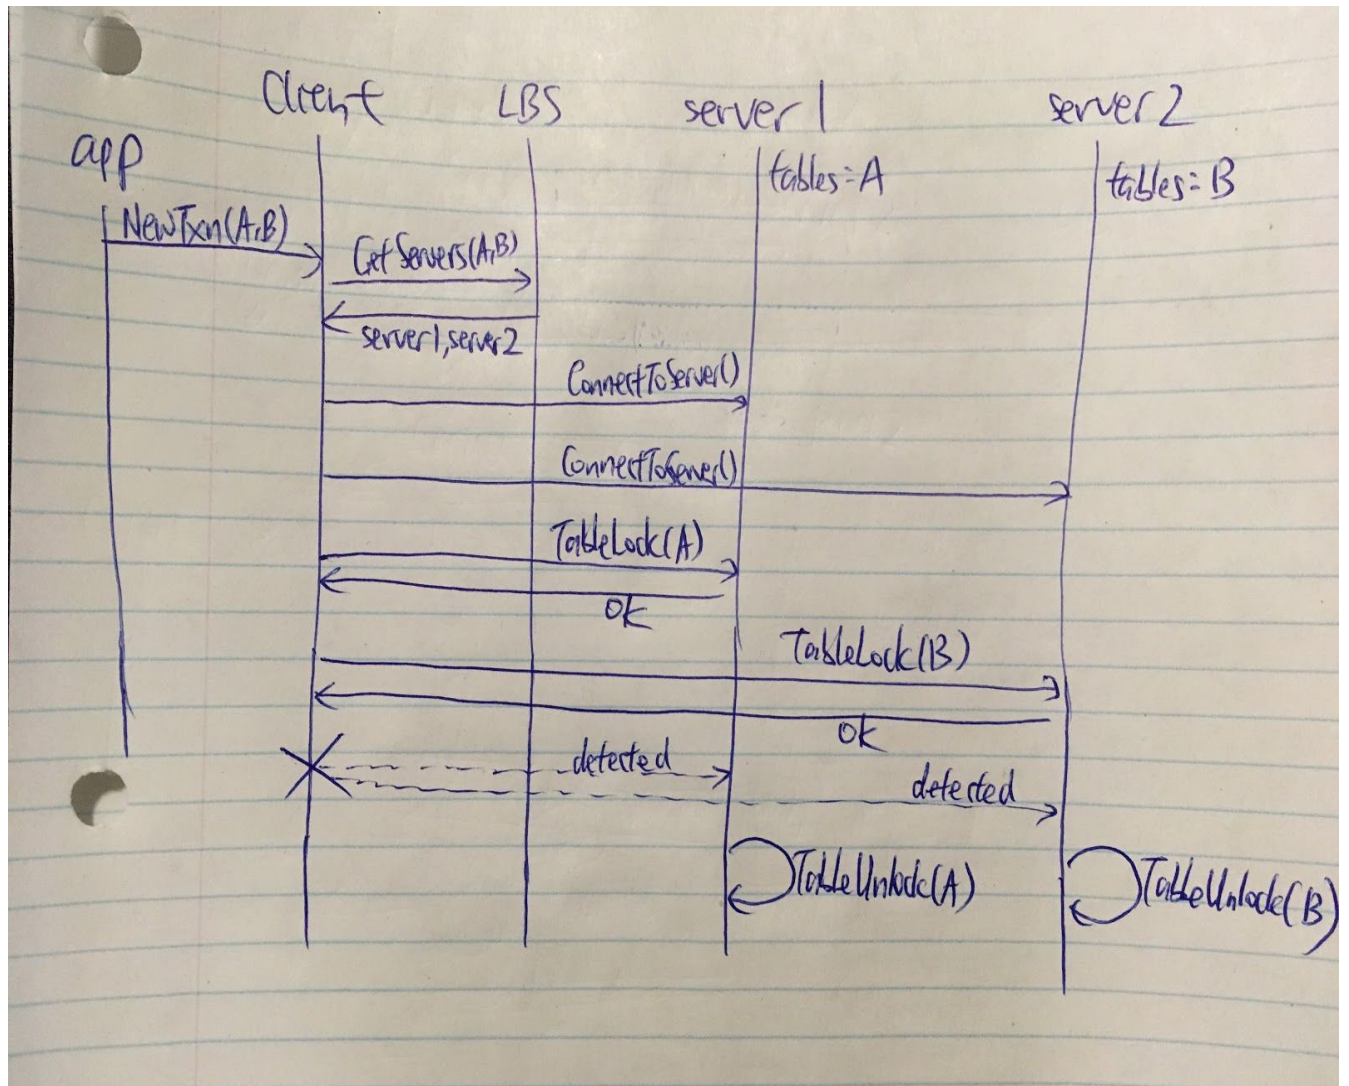 Client LBS server1 server2
app
tables=A
tables=B
NewTxn(A,B)
GetServers(A,B)
server1,server2
ConnectToServer()
ConnectToServer()
TableLock(A)
ok
TableLock(B)
ok
detected
detected
TableUnlock(A)
TableUnlock(B)